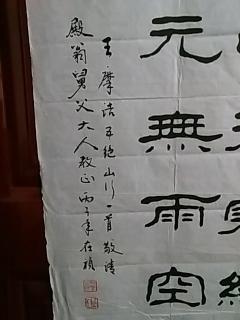 元無雨空
王摩詰五絕山行一首敬請
殿翁舅父大人教正丙子年在